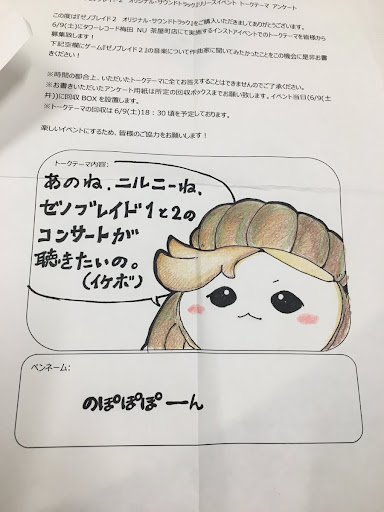 ゼノブレイド2 オリジナル・サウンドトラック』リリースイベント トークテーマ アンケート
この度は『ゼノブレイド2 オリジナル・サウンドトラック』をご購入いただきましてありがとうございます。
6/9(土)にタワーレコード梅田 NU 茶屋町店にて実施するインストアイベントでのトークテーマを皆様から
募集致します！
下記空欄にゲーム『ゼノブレイド2』の音楽について作曲家に聞いてみたかったことをこの機会に是非お書
きください！
※時間の都合上、いただいたトークテーマに全てお答えすることはできませんのでご了承ください。
※お書きいただいたアンケート用紙は所定の回収ボックスまでお願い致します。イベント当日(6/9(土
井))に回収 BOX を設置します。
※トークテーマの回収は 6/9(土)18：30 頃を予定しております。
楽しいイベントにするため、皆様のご協力をお願いします！
トークテーマ内容:
あのね、ニルニーね、
ゼノブレイド1と2の
コンサートが
聴きたいの。
(イケボ)
ペンネーム:
のぽぽぽーん